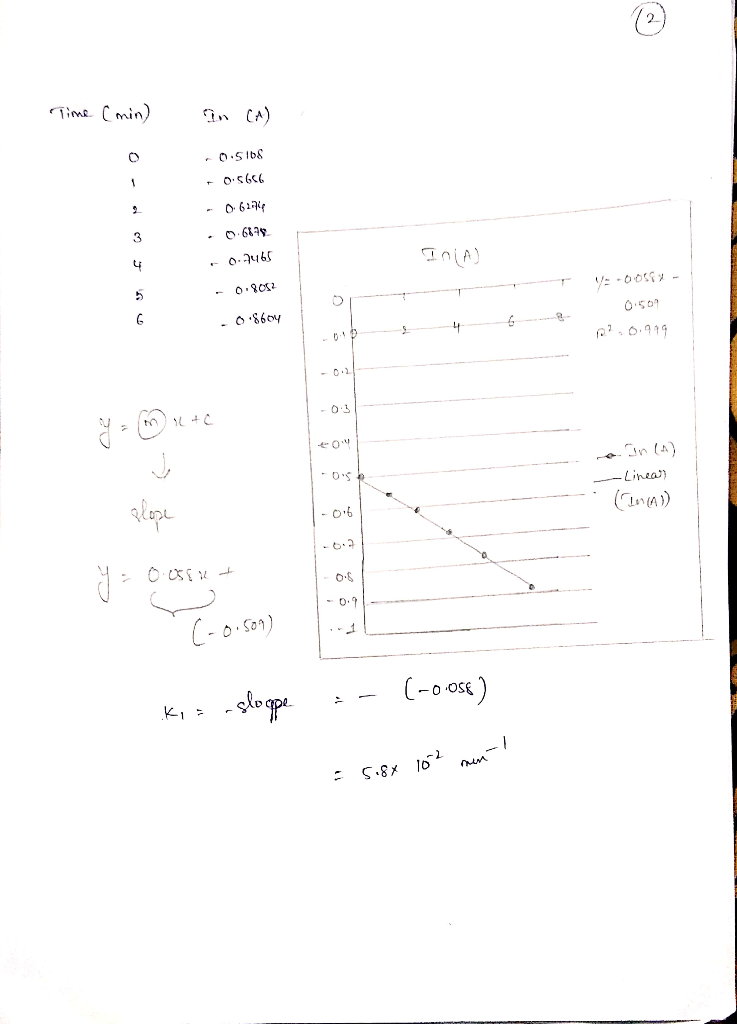 2
Time (min) In (A)
0 - 0.5108
1 - 0.5656
2 - 0.6274
3 - 0.6878
4 - 0.7465
5 - 0.8052
6 - 0.8604
In(A)
y = -0.058x -
0.509
R² = 0.999
0
-0.1 2 4 6 8
-0.2
-0.3
-0.4
-0.5
-0.6
-0.7
-0.8
-0.9
--1
In (A)
Linear
(In(A))
y = m x + c
slope
y = 0.058x +
(-0.509)
K1 = - slope = - (-0.058)
= 5.8x 10-2 min-1